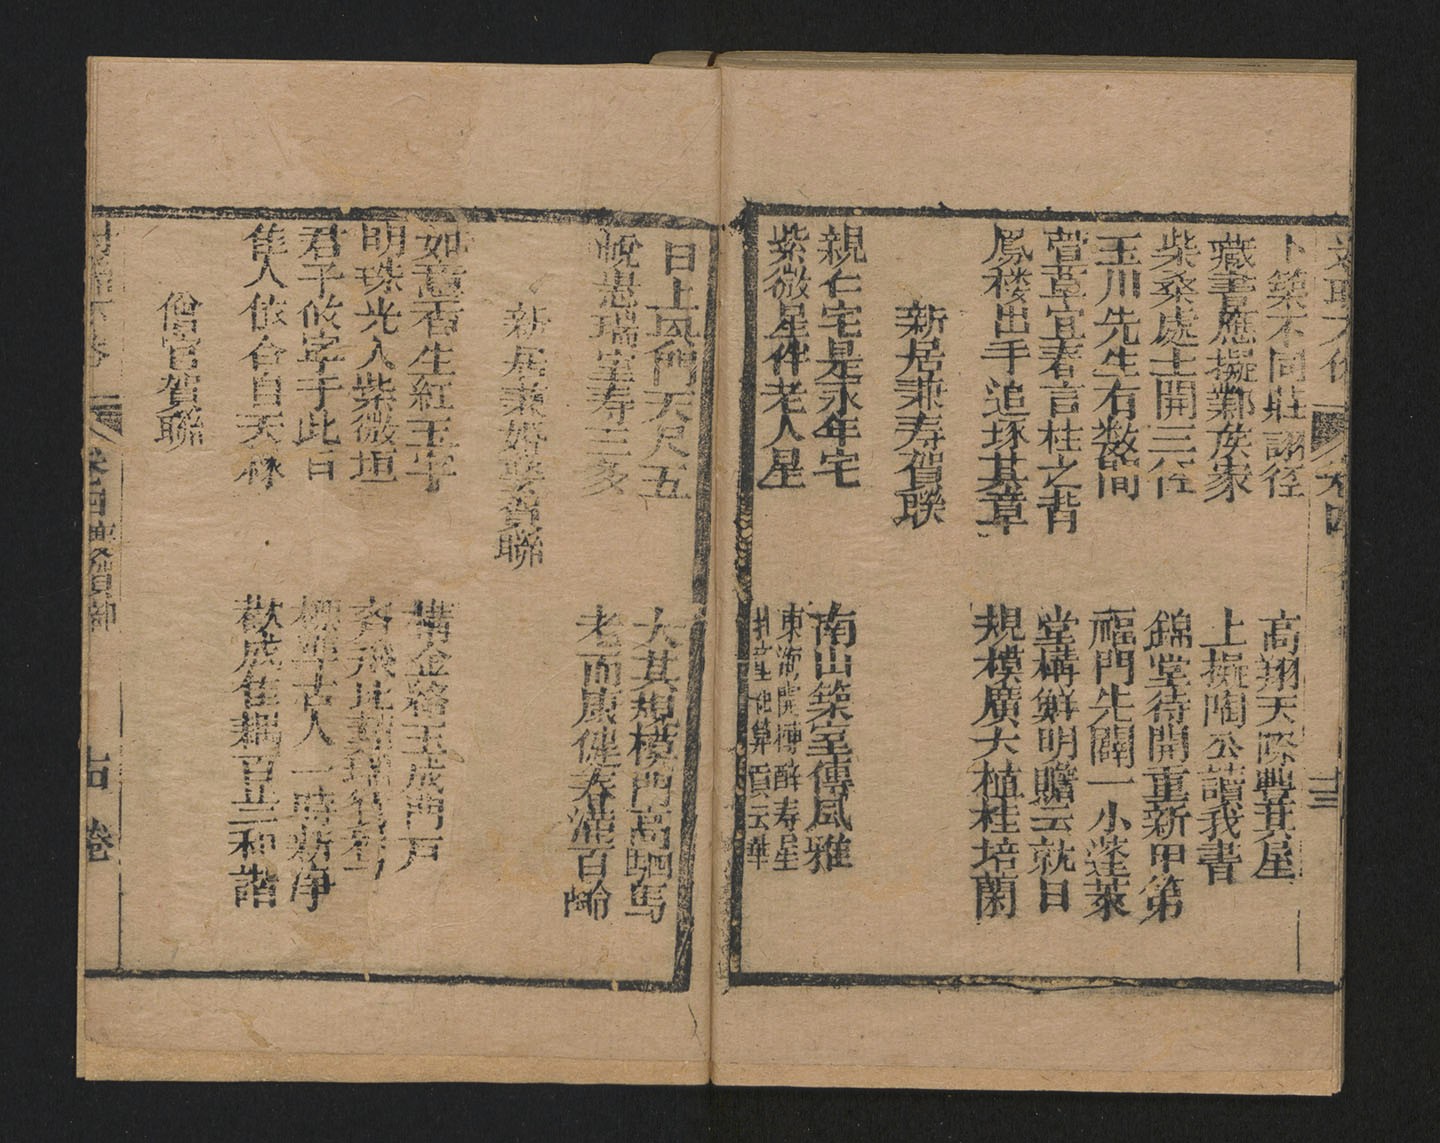 卜築不同莊詡徑
高翔天際聘其屋
藏書應擬鄴侯家
上擬陶公讀我書
柴桑處士開三徑
錦堂待開重新甲第
玉川先生有数間
福門先闢一小蓬萊
萱草宜春言桂之背
堂構鮮明瞻云就日
鳳楼出手追琢其章
規模廣大植桂培蘭
新居兼寿賀聯
親仁宅是永年宅
南山築室傳風雅
紫微星伴老人星
東海開樽醉寿星
日上風門天尺五
大其規模門高駟馬
帨悬瑞室寿三多
老而康健寿滿百齡
新居兼婚娶賀聯
如意香生紅玉字
構金路玉成門戶
明珠光入紫薇垣
君子攸寧于此日
標準古人一時新净
隹人依合自天緣
歡成隹耦百年和諧
僧官賀聯
卷四
十四